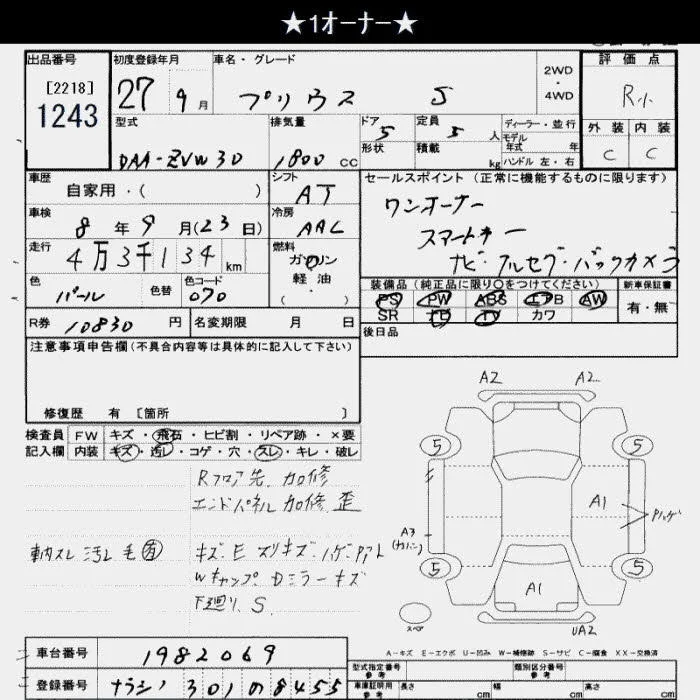 ★1オーナー★
出品番号 初度登録年月 車名・グレード 評価点
[2218]
1243
27 9月 プリウス S
2WD
・
4WD
R小
外装 内装
C C
型式 排気量 ドア 定員 ディーラー・並行
DAA-ZVW30 1800cc 5 5人 モデル
年式 年
形状 積載 kg ハンドル 左・右
車歴 シフト セールスポイント (正常に機能するものに限ります)
自家用・( ) AT
ワンオーナー
スマートキー
ナビ・フルセグ・バックカメラ
車検 冷房
8年9月(23日) AAC
走行 燃料
4万3千134km ガソリン
軽油
・
色 色替 色コード
パール 070
装備品 (純正品に限り○をつけてください) 新車保証書
PS PW ABS エアB AW 有・無
SR カワ
R券 10830円 名変期限 月 日
後日品
注意事項申告欄(不具合内容等は具体的に記入して下さい)
修復歴 有 [箇所 ]
検査員 FW キズ・飛石・ヒビ割・リペア跡・×要
記入欄 内装 キズ・汚レ・コゲ・穴・スレ・キレ・破レ
Rフロア先 加修
エンドパネル加修 歪
車内スレ 汚レ 毛 有
Wキャップ Dミラーキズ
下廻り、S
A2 A2
5 5
A1
A3
5 5
A1
スペア UA2
A-キズ E-エクボ U-凹み W-補修跡 S-サビ C-腐食 XX-交換済
車台番号 1982069
登録番号 ナラシノ 301の8455
型式指定番号
参考
類別区分番号
参考
車庫証明用
参考
長さ cm 幅 cm 高さ cm